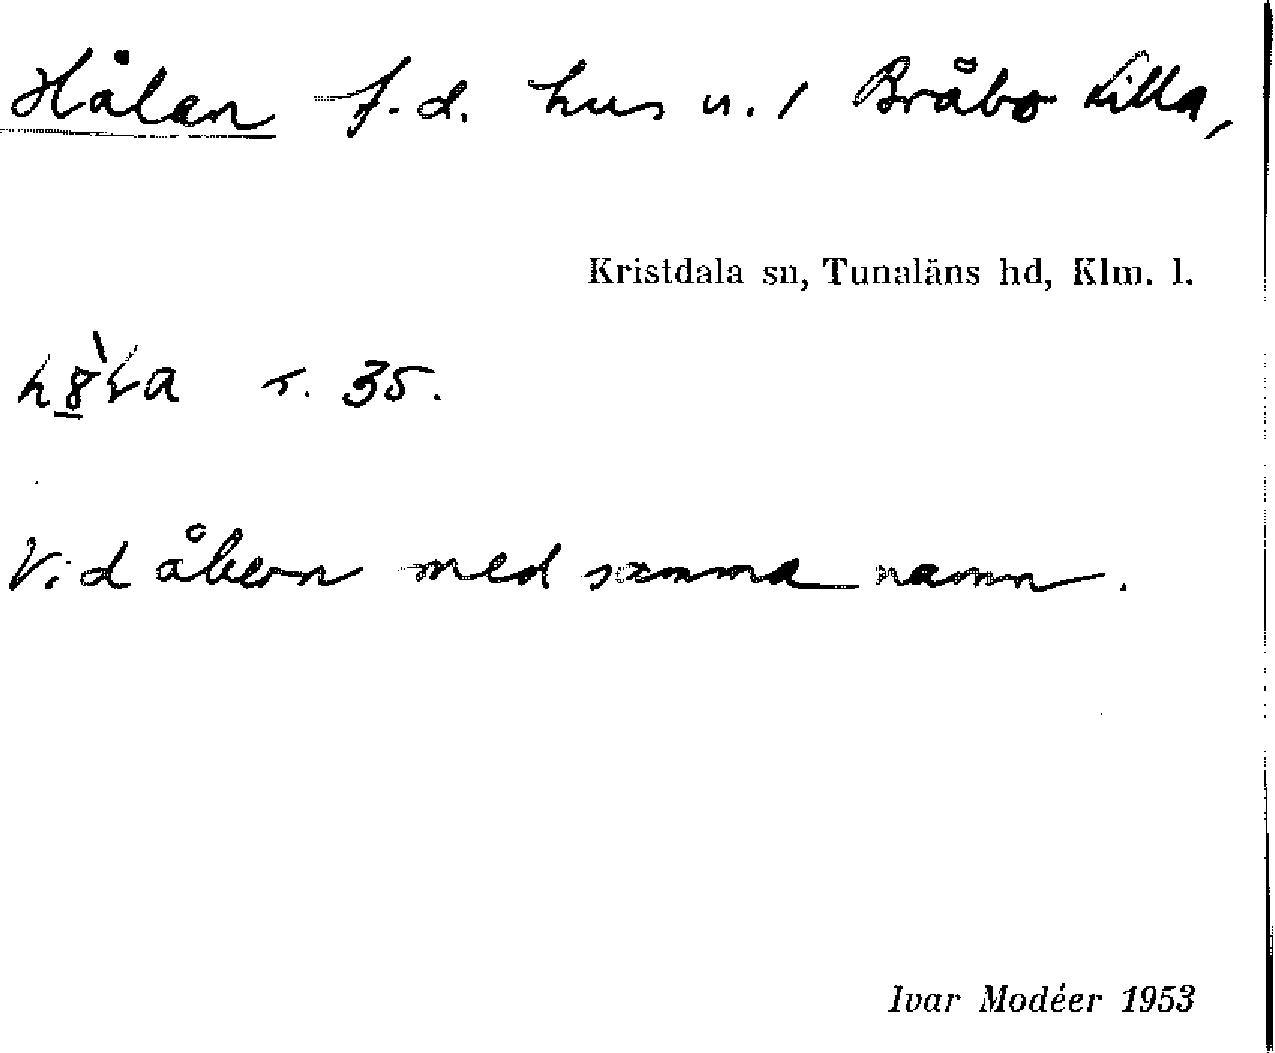 Hålan f.d. hus u. 1 Bråbo Lilla,
Kristdala sn, Tunaläns hd, Klm. l.
s. 35.
Vid åkern med samma namn.
Ivar Modéer 1953